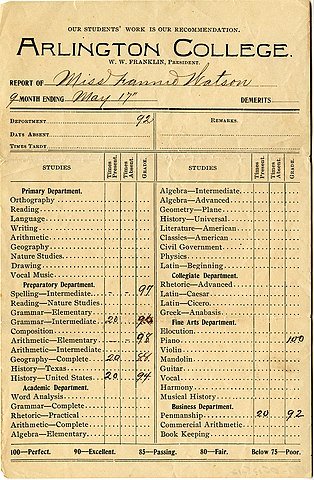 OUR STUDENTS' WORK IS OUR RECOMMENDATION.
ARLINGTON COLLEGE.
W. W. FRANKLIN, PRESIDENT.
REPORT OF Miss Fannie Watson
9 MONTH ENDING May 17 DEMERITS
DEPORTMENT 92
DAYS ABSENT
TIMES TARDY
REMARKS.
STUDIES Times Present. Times Absent. GRADE.
Primary Department.
Orthography
Reading
Language
Writing
Arithmetic
Geography
Nature Studies
Drawing
Vocal Music
Preparatory Department.
Spelling—Intermediate - - 97
Reading—Nature Studies
Grammar—Elementary
Grammar—Intermediate 20 96
Composition
Arithmetic—Elementary - - 98
Arithmetic—Intermediate
Geography—Complete 20 84
History—Texas
History—United States 20 94
Academic Department.
Word Analysis
Grammar—Complete
Rhetoric—Practical
Arithmetic—Complete
Algebra—Elementary
STUDIES Times Present. Times Absent. GRADE.
Algebra—Intermediate
Algebra—Advanced
Geometry—Plane
History—Universal
Literature—American
Classics—American
Civil Government
Physics
Latin—Beginning
Collegiate Department.
Rhetoric—Advanced
Latin—Caesar
Latin—Cicero
Greek—Anabasis
Fine Arts Department.
Elocution
Piano 100
Violin
Mandolin
Guitar
Vocal
Harmony
Musical History
Business Department.
Penmanship 20 92
Commercial Arithmetic
Book Keeping
100—Perfect. 90—Excellent. 85—Passing. 80—Fair. Below 75—Poor.